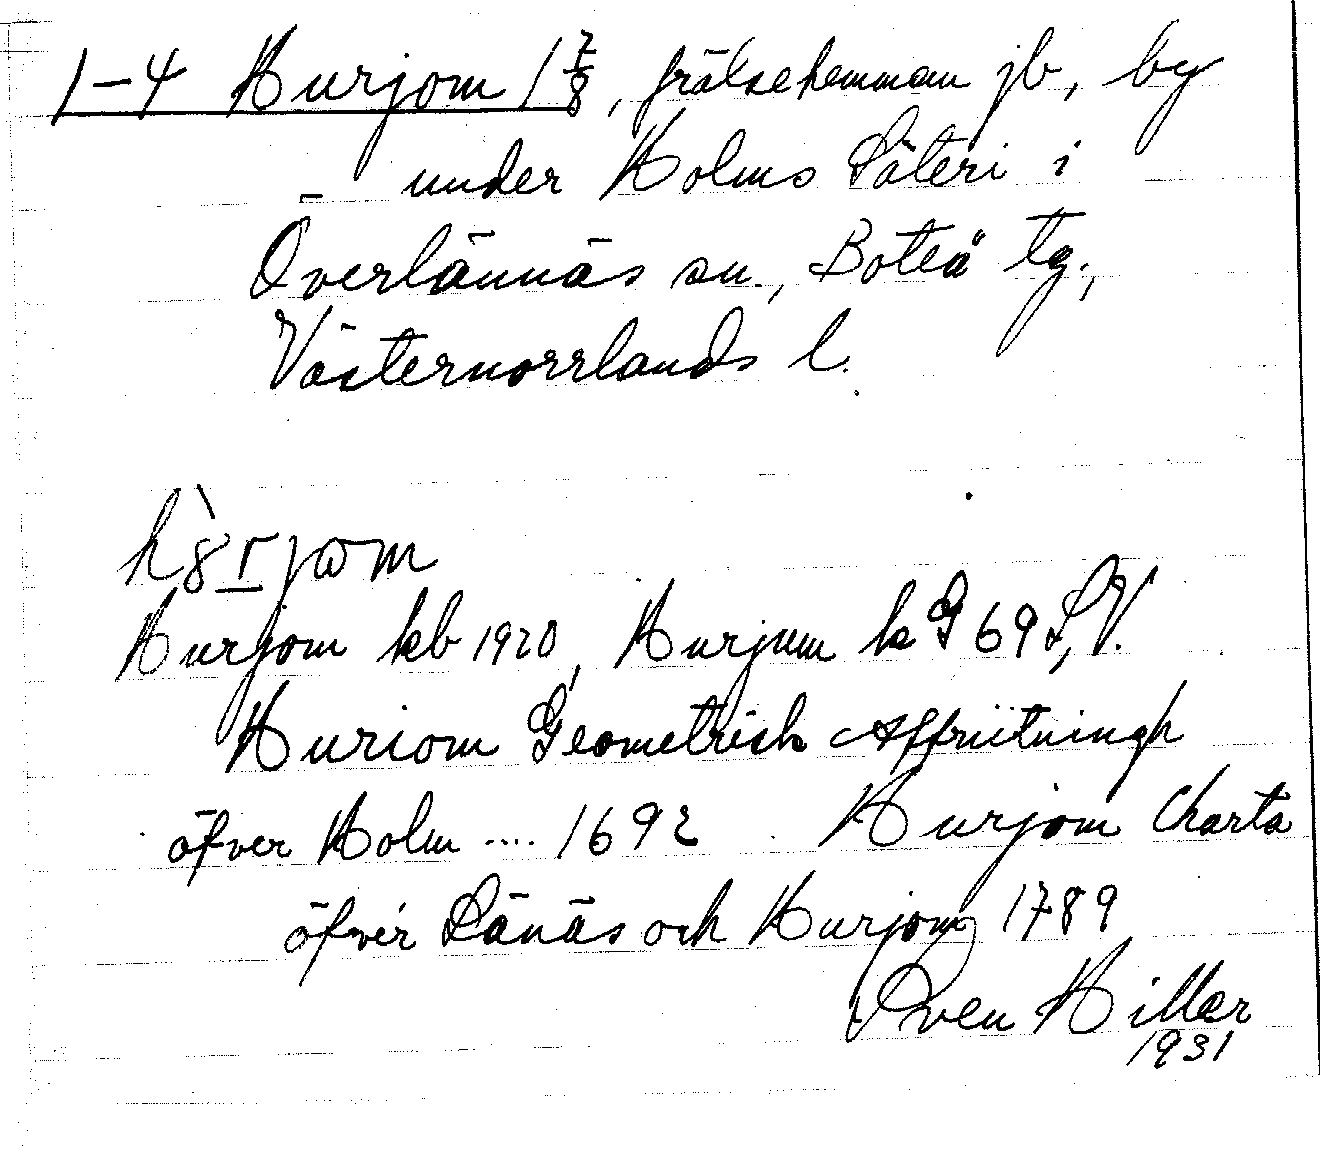 1-4 Hurjom 1 7/8, frälsehemman jb, by
under Holms Säteri i
Överlännäs sn., Boteå tg.,
Västernorrlands l.
Hurjom kb 1920, Hurjum k G 69 S,V.
Huriom Geometrisk Affriitningh
öfver Holm .... 1692 Hurjom Charta
öfver Länäs och Hurjom 1789
Sven Hiller
1931